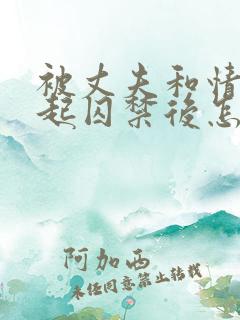 被丈夫和情
起囚禁後怎
阿加西
未经同意禁止转载